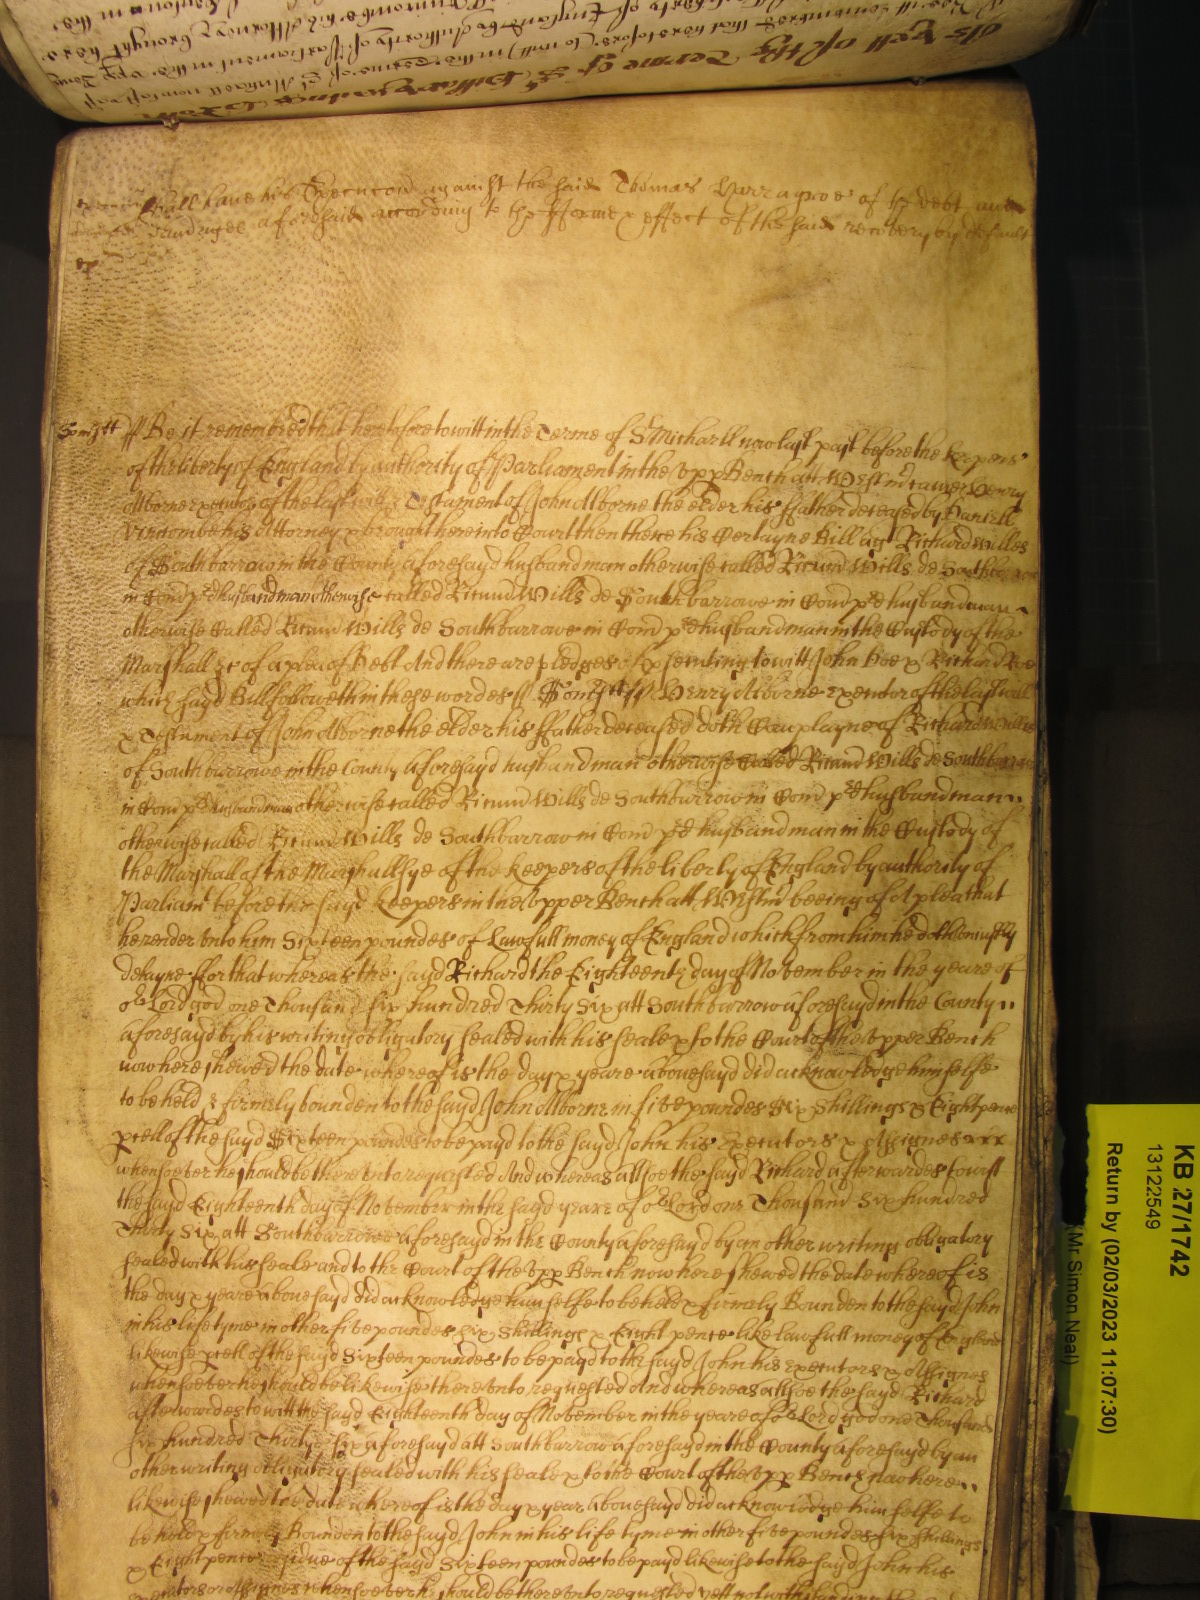 shall have his Execucon against the said Thomas of the debt and
aforesaid according to the fforme & effect of the said recovery by default
Somsett ss Be it remembred that heretofore to witt in the Terme of St Michaell now last past before the Keepers
of the liberty of England by authority of Parliament in the Upp Bench att Westmr came Henry
Alborne executor of the last will & Testament of John Alborne the elder his ffather deceased by Daniell
his Attorney & brought here into Court then there his Certayne Bill agt Richard Willes
of Southbarrow in the County aforesayd husbandman otherwise called Ricum Wills de Southbarrow
in Com pred husbandman otherwise called Ricum Wills de Southbarrowe in Com pred husbandman
otherwise Called Ricum Wills de Southbarrowe in Com pred husbandman in the Custody of the
Marshall &c of a plea of Debt And there are pledges of prosecuting to witt John Doe & Richard Roe
which sayd Bill followeth in these wordes ss Somsett ss Henry Alborne executor of the last will
& Testament of John Alborne the elder his ffather deceased doth Complayne of Richard Willes
of Southbarrowe in the County aforesayd husbandman otherwise Called Ricum Wills de Southbarrow
in Com pred husbandman otherwise called Ricum Wills de Southbarrow in Com pred husbandman
otherwise called Ricum Wills de Southbarrow in Com pred husbandman in the Custody of
the Marshall of the Marshallsye of the Keepers of the liberty of England by authority of
Parliamt before the sayd Keepers in the Upper Bench att Westmr beeing of A plea that
he render unto him Sixteen poundes of Lawfull money of England which from him he doth uniustly
detayne ffor that whereas the sayd Richard the Eighteenth day of November in the yeare of
or Lord god one Thousand six hundred Thirty Six att Southbarrow aforesayd in the County
aforesayd by his writing obligatory sealed with his seale & to the Court of the Upper Bench
now here shewed the date whereof is the day & yeare abovesayd did acknowledge himselfe
to be held & firmely bounden to the sayd John Alborne in five poundes Six Shillings & Eight pence
pcell of the sayd Sixteen poundes to be payd to the sayd John his Executors & Assignes
whensoever he should be there unto requested And whereas allsoe the sayd Richard afterwardes to witt
the sayd Eighteenth day of November in the sayd yeare of or Lord one Thousand Six hundred
Thirty Six att Southbarrowe aforesayd in the County aforesayd by an other writing obligatory
sealed with his seale and to the Court of the Upp Bench now here shewed the date whereof is
the day & yeare abovesayd did acknowledge him selfe to be held & firmely Bounden to the sayd John
in his life tyme in other five poundes six Shillings & Eight pence like lawfull money of England
likewise pcell of the sayd Sixteen poundes to be payd to the sayd John his Executors & Assignes
whensoever he should be likewise there unto requested And whereas allsoe the sayd Richard
afterwardes to witt the sayd Eighteenth day of November in the yeare of or Lord god one Thousand
six hundred Thirty six aforesayd att Southbarrow aforesayd in the County aforesayd by an
other writing obligatory sealed with his seale & to the Court of the Upp Bench now here
likewise shewed the date whereof is the day & yeare abovesayd did acknowledge him selfe to
be held & firmely Bounden to the sayd John in his life tyme in other five poundes six shillings
& Eight pence residue of the sayd Sixteen poundes to be payd likewise to the sayd John his
executors or Assignes whensoever he should be there unto requested yett notwithstanding the
KB 27/1742
13122549
Return by (02/03/2023 11:07:30)
(Mr Simon Neal)